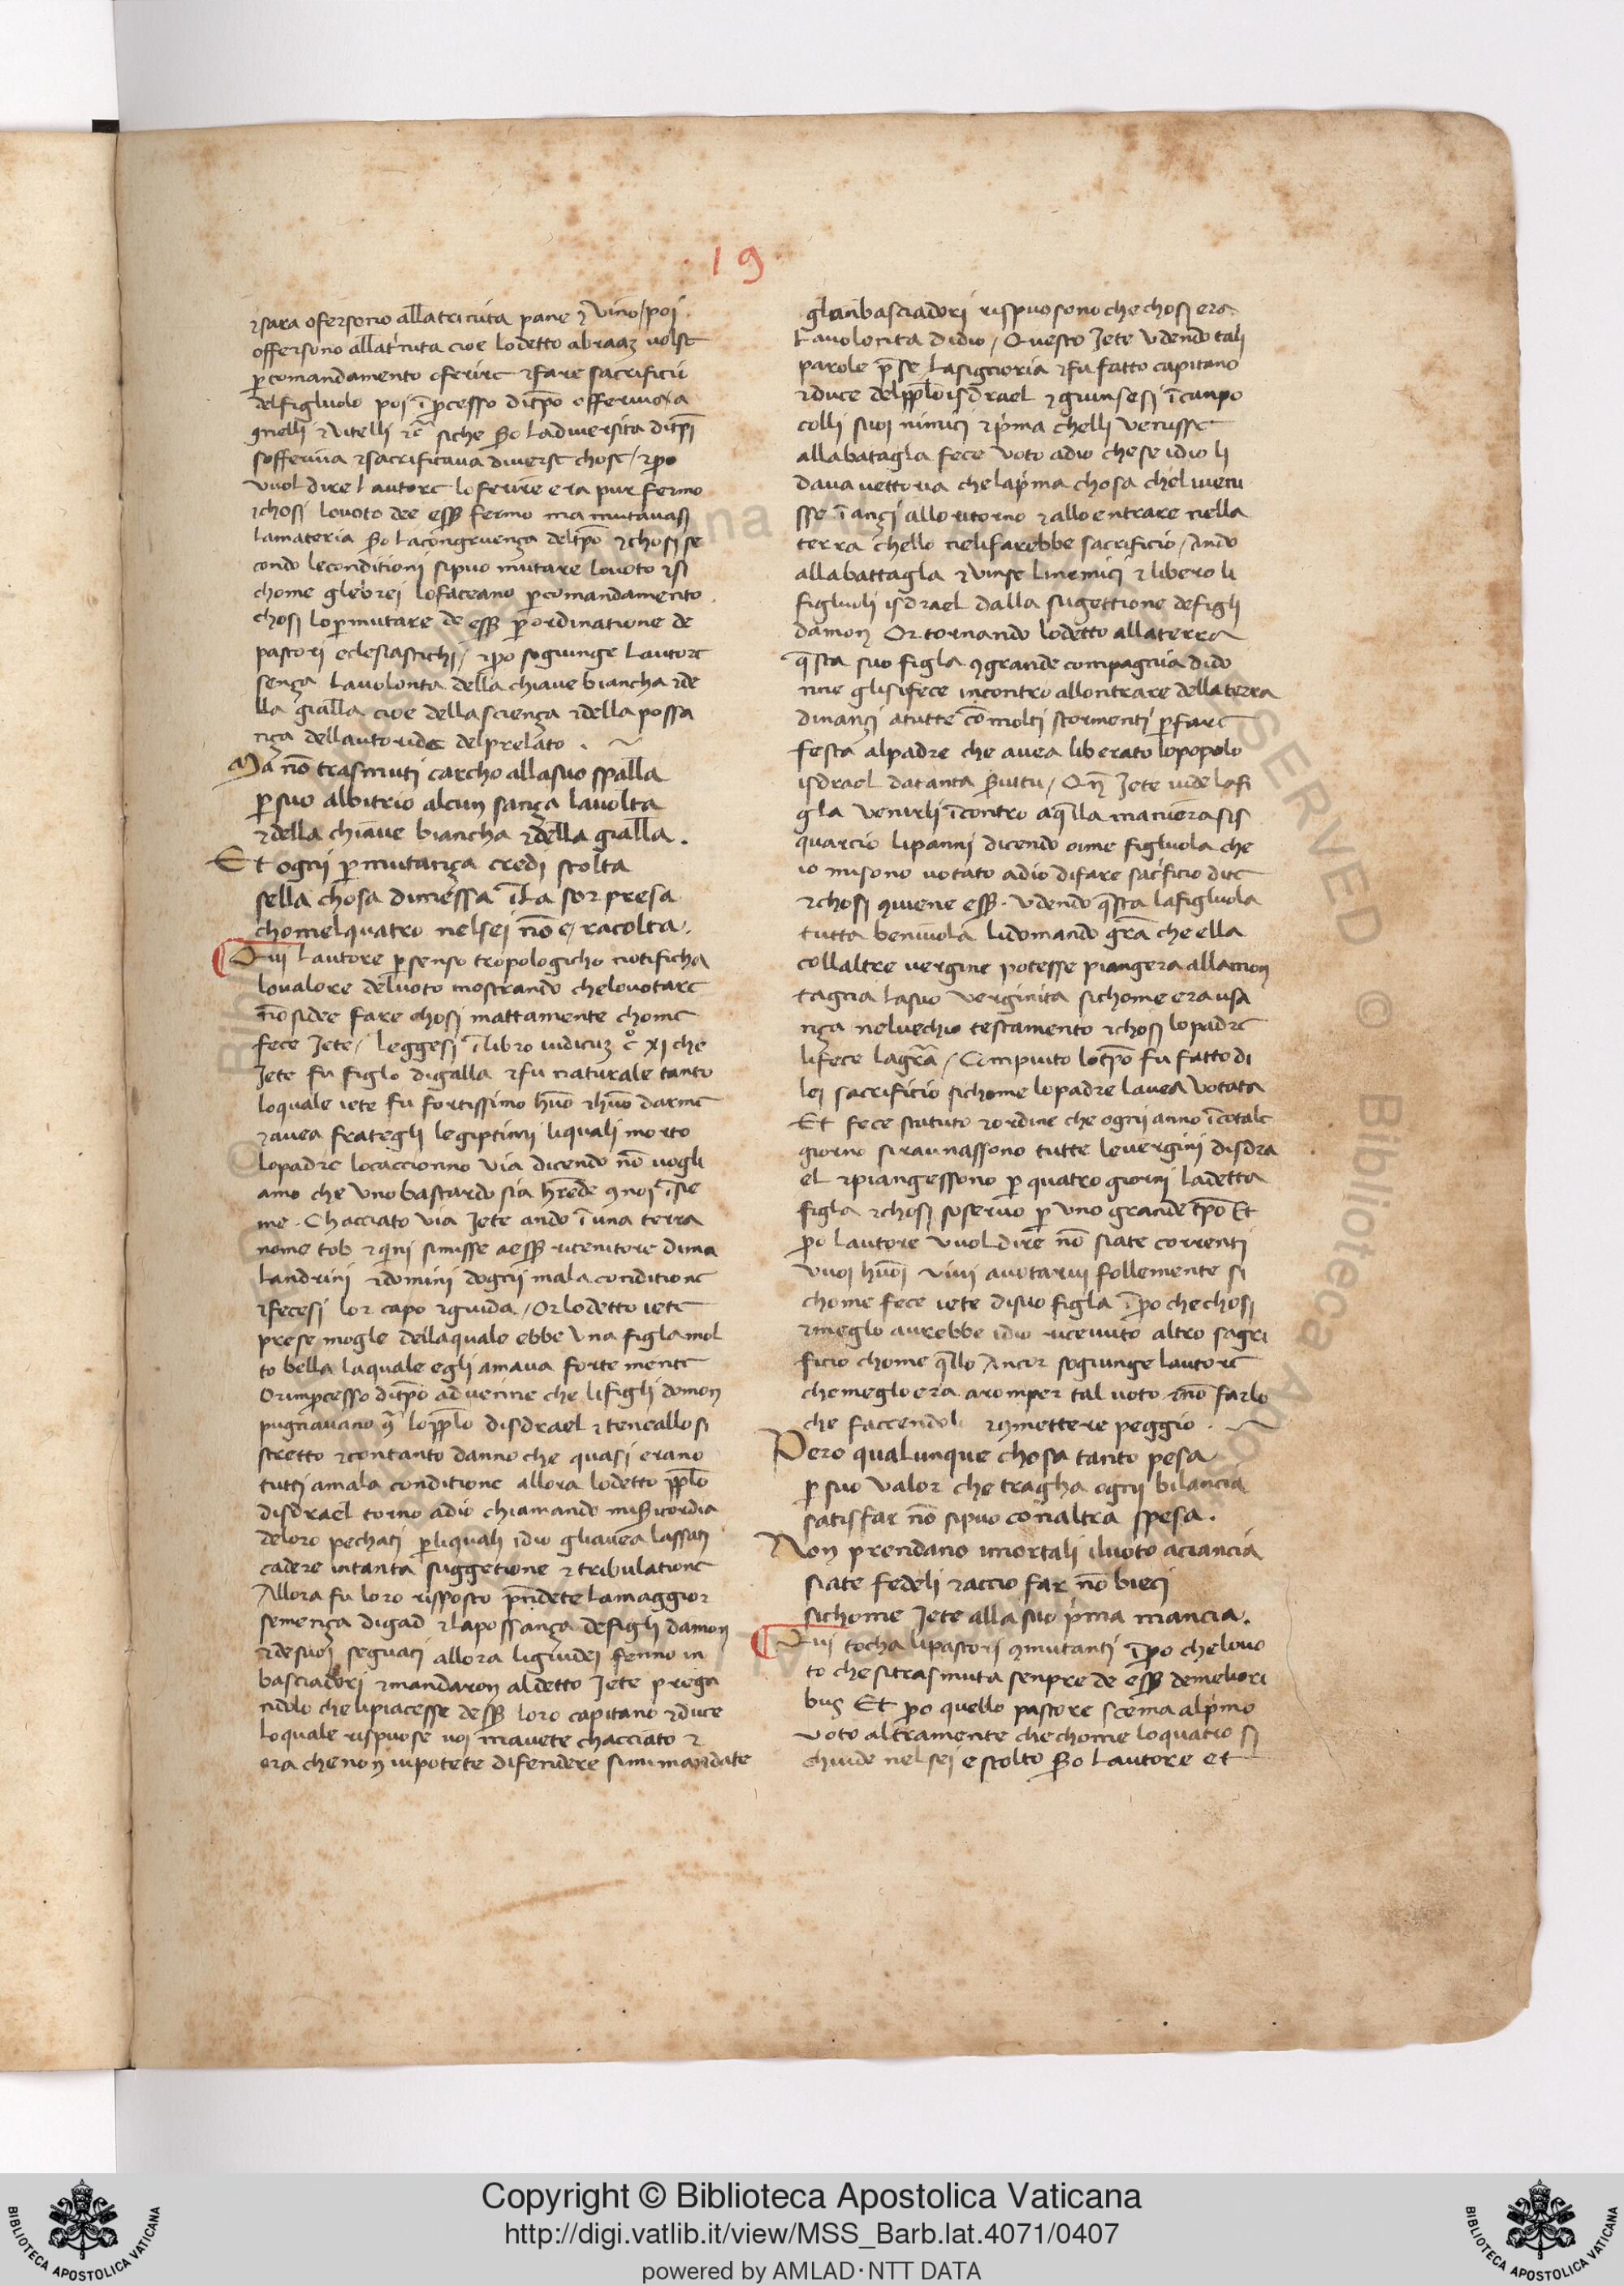 19
⁊sara ofersono allatrinita pane ⁊ vino / poi
offersono allatrinita cioe lodetto abraaz volse
ꝑ comandamento oferire ⁊fare sacrificii
delfigluolo poi ī ꝓcesso ditp̄o offerivo a
gnelli ⁊vitelli ⁊c̄ siche ꝓo ladiversita ditp̄i
sofferiva ⁊sacrificava diverse chose / ⁊ꝑo
vuol dire lautore loferire era pur fermo
⁊chosi lovoto dee eēr fermo ma mutavasi
lamateria lacongruenza deltp̄o ⁊chosi se
condo leconditioni sipuo mutare lovoto ⁊si
chome glebrei lofaceano ꝑcomandamento
chosi loꝑmutare de ꝑ ordinatione de
pastori eclesiastichi / ⁊ꝑo sogiunge lautore
senza lavolonta della chiave biancha ⁊de
lla gialla cioe dellascienza ⁊della possa
nza dellautorida delprelato .
Ma nō trasmuti carcho allasuo spalla
ꝑ suo albitrio alcun sanza lavolta
⁊della chiave biancha ⁊della gialla .
Et ogni ꝑmutanza credi stolta
sella chosa dimessa īla sorpresa
chomelquatro nelsei nō e / racolta .
Qui lautore ꝑ senso tropologicho notificha
lovalore delvoto mostrando chelovotare
nō sidee fare chosi mattamente chome
fece Jete / leggesi ī libro iudicuz c° xj che
Jete fu figlo digalla ⁊fu naturale tanto
loquale iete fu fortissimo hūo ⁊hūo darme
⁊avea frategli legiptimi liquali morto
lopadre locaccionno via dicendo nō vogli
amo che uno bastardo sia h̄rede 9noi īsie
me . Chacciato via Jete ando ī una terra
nome tob ⁊q̄ni simisse a ritenitore dima
landrini ⁊domini dogni mala conditione
⁊fecesi lor capo ⁊guida / Or lodetto iete
prese mogle dellaquale ebbe una figla mol
to bella laquale egli amava forte mente
Or inꝓcesso ditp̄o advenne che lifigli damon
pugnavano 9ͣ loppl̄o disdrael ⁊tencallo si
stretto ⁊contanto danno che quasi erano
tutti amala conditione allora lodetto ppl̄o
disdrael torno adio chiamando misericordia
deloro pechati ꝑliquali idio gliavea lassati
cadere intanta suggetione ⁊tribulatione
Allora fu loro risposto pn̄dete lamaggior
semenza digad ⁊lapossanza defigli damon
⁊desuoi seguaci allora ligiudei fenno in
basciadori ⁊mandaron aldetto Jete prega
ndolo chelipiacesse loro capitano ⁊duce
loquale rispuose voi mavete chacciato ⁊
ora che non vipotete difendere simimandate
glanbasciadori rispuosono che chosi era
lavolonta didio / Questo Jete udendo tali
parole p̄se lasignoria ⁊fu fatto capitano
⁊duce delppl̄o isdrael ⁊giunsesi ī canpo
colli suoi nimici ⁊p̄ma chelli venisse
allabatagla fece voto adio chese idio li
dava vettoria chelap̄ma chosa cheliveni
sse īanzi alloritorno ⁊allo entrare nella
terra chello nelifarebbe sacrificio / Ando
allabattagla ⁊vinse linemici ⁊libero li
figluoli isdrael dalla sugettione defigli
damon Or tornando lodetto allaterra
q̄sta suo figla 9grande compagnia dido
nne glisifece incontro allontrare dellaterra
dinanzi atutte cō molti stormenti ꝑ fare
festa alpadre che avea liberato lopopolo
isdrael datanta / Jete vide lafi
gla venirli īcontro aq̄lla maniera sis
quarcio lipanni dicendo oime figluola che
io misono votato adio difare sacrificio dite
⁊chosi 9viene . Udendo q̄sta lafigluola
tutta benivola lidomando gr̄a che ella
collaltre vergine potesse piangera allamon
tagnia lasuo verginita sichome era usa
nza nelvechio testamento ⁊chosi lopadre
lifece lagr̄a / Compiuto lotp̄o fu fatto di
lei sacrificio sichome lopadre lavea votata
Et fece statuto ⁊ordine che ogni anno ī cotale
giorno siraunassono tutte levergini disdra
el ⁊piangessono ꝑ quatro giorni ladetta
figla ⁊chosi soservo ꝑ uno grande tp̄o Et
ꝑo lautore vuoldire nō siate correnti
vuoi hūoi vivi avotarvi follemente si
chome fece iete disuo figla īꝑo che chosi
⁊meglo avrebbe idio ricevuto altro sagri
ficio chome q̄llo Ancor sogiunge lautore
chemegloera aromper tal voto ⁊nō farlo
che faccendol ⁊9mettere peggio .
Pero qualunque chosa tanto pesa
ꝑ suo valor che tragha ogni bilancia
satisfar nō sipuo conaltra spesa .
Non prendano imortali ilvoto aciancia
siate fedeli ⁊accio far nō bieci
sichome Jete alla suo p̄ma mancia .
Qui tocha lipastori 9mutanti īꝑo chelovo
to chesitrasmuta senpre de demeliori
bus Et ꝑo quello pastore scema alp̄mo
voto altramente che chome loquatro si
chiude nel sei e stolto lautore et
Copyright © Biblioteca Apostolica Vaticana
http://digi.vatlib.it/view/MSS_Barb.lat.4071/0407
powered by AMLAD·NTT DATA
BIBLIOTECA APOSTOLICA VATICANA
BIBLIOTECA APOSTOLICA VATICANA